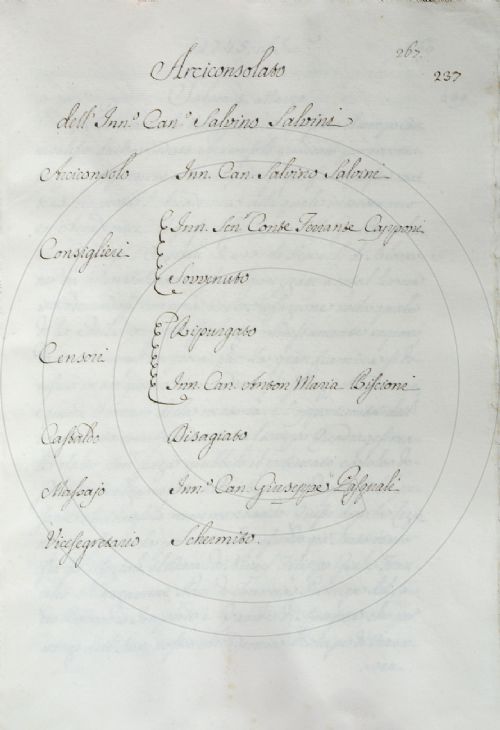 267.
237
Arciconsolato
dell' Inn.º Can.º Salvino Salvini
Arciconsolo Inn. Can. Salvino Salvini
Consiglieri Inn. Sen.r Conte Ferrante Capponi
Sovvenuto
Censori Ripurgato
Inn. Can. Anton Maria Biscioni
Castaldo Disagiato
Massajo Inn.º Can. Giuseppe Pasquali
Vicesegretario Schermito.